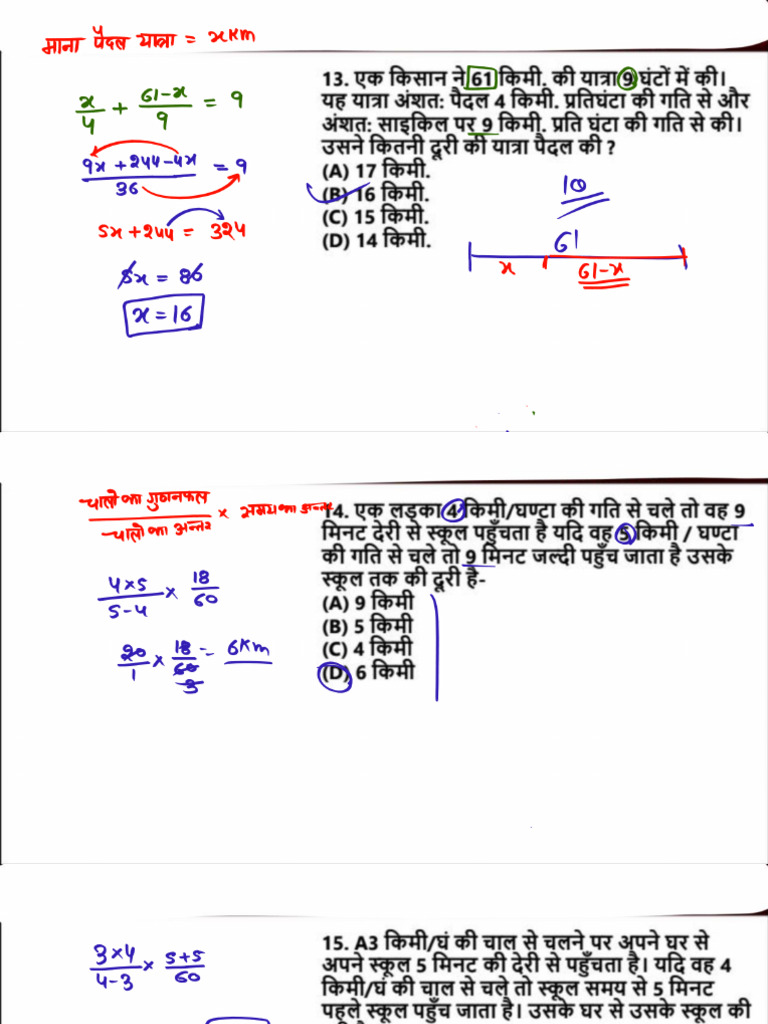 माना पैदल यात्रा = xKm
x/4 + 61-x/9 = 9
9x+244-4x/36 = 9
5x+244 = 324
5x = 86
x = 16
13. एक किसान ने 61 किमी. की यात्रा 9 घंटों में की।
यह यात्रा अंशत: पैदल 4 किमी. प्रतिघंटा की गति से और
अंशत: साइकिल पर 9 किमी. प्रति घंटा की गति से की।
उसने कितनी दूरी की यात्रा पैदल की ?
(A) 17 किमी.
(B) 16 किमी.
(C) 15 किमी.
(D) 14 किमी.
10
61
x 61-x
चालो का गुणनफल/चालो का अन्तर × समय का अन्तर
4×5/5-4 × 18/60
20/1 × 18/60 = 6Km
3
14. एक लड़का 4 किमी/घण्टा की गति से चले तो वह 9
मिनट देरी से स्कूल पहुँचता है यदि वह 5 किमी / घण्टा
की गति से चले तो 9 मिनट जल्दी पहुँच जाता है उसके
स्कूल तक की दूरी है-
(A) 9 किमी
(B) 5 किमी
(C) 4 किमी
(D) 6 किमी
3×4/4-3 × 5+5/60
15. A3 किमी/घं की चाल से चलने पर अपने घर से
अपने स्कूल 5 मिनट की देरी से पहुँचता है। यदि वह 4
किमी/घं की चाल से चले तो स्कूल समय से 5 मिनट
पहले स्कूल पहुँच जाता है। उसके घर से उसके स्कूल की